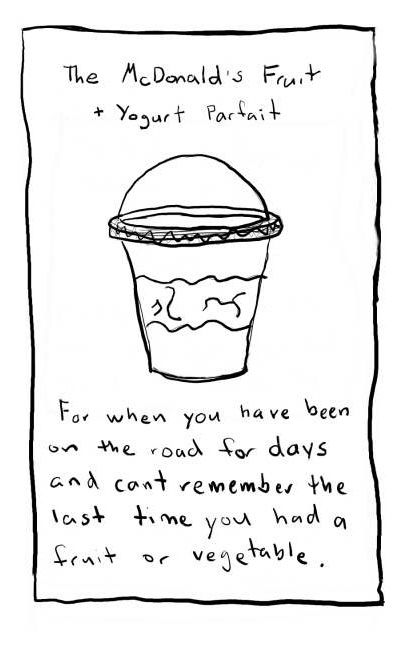 The McDonald's Fruit
+ Yogurt Parfait
For when you have been
on the road for days
and cant remember the
last time you had a
fruit or vegetable.